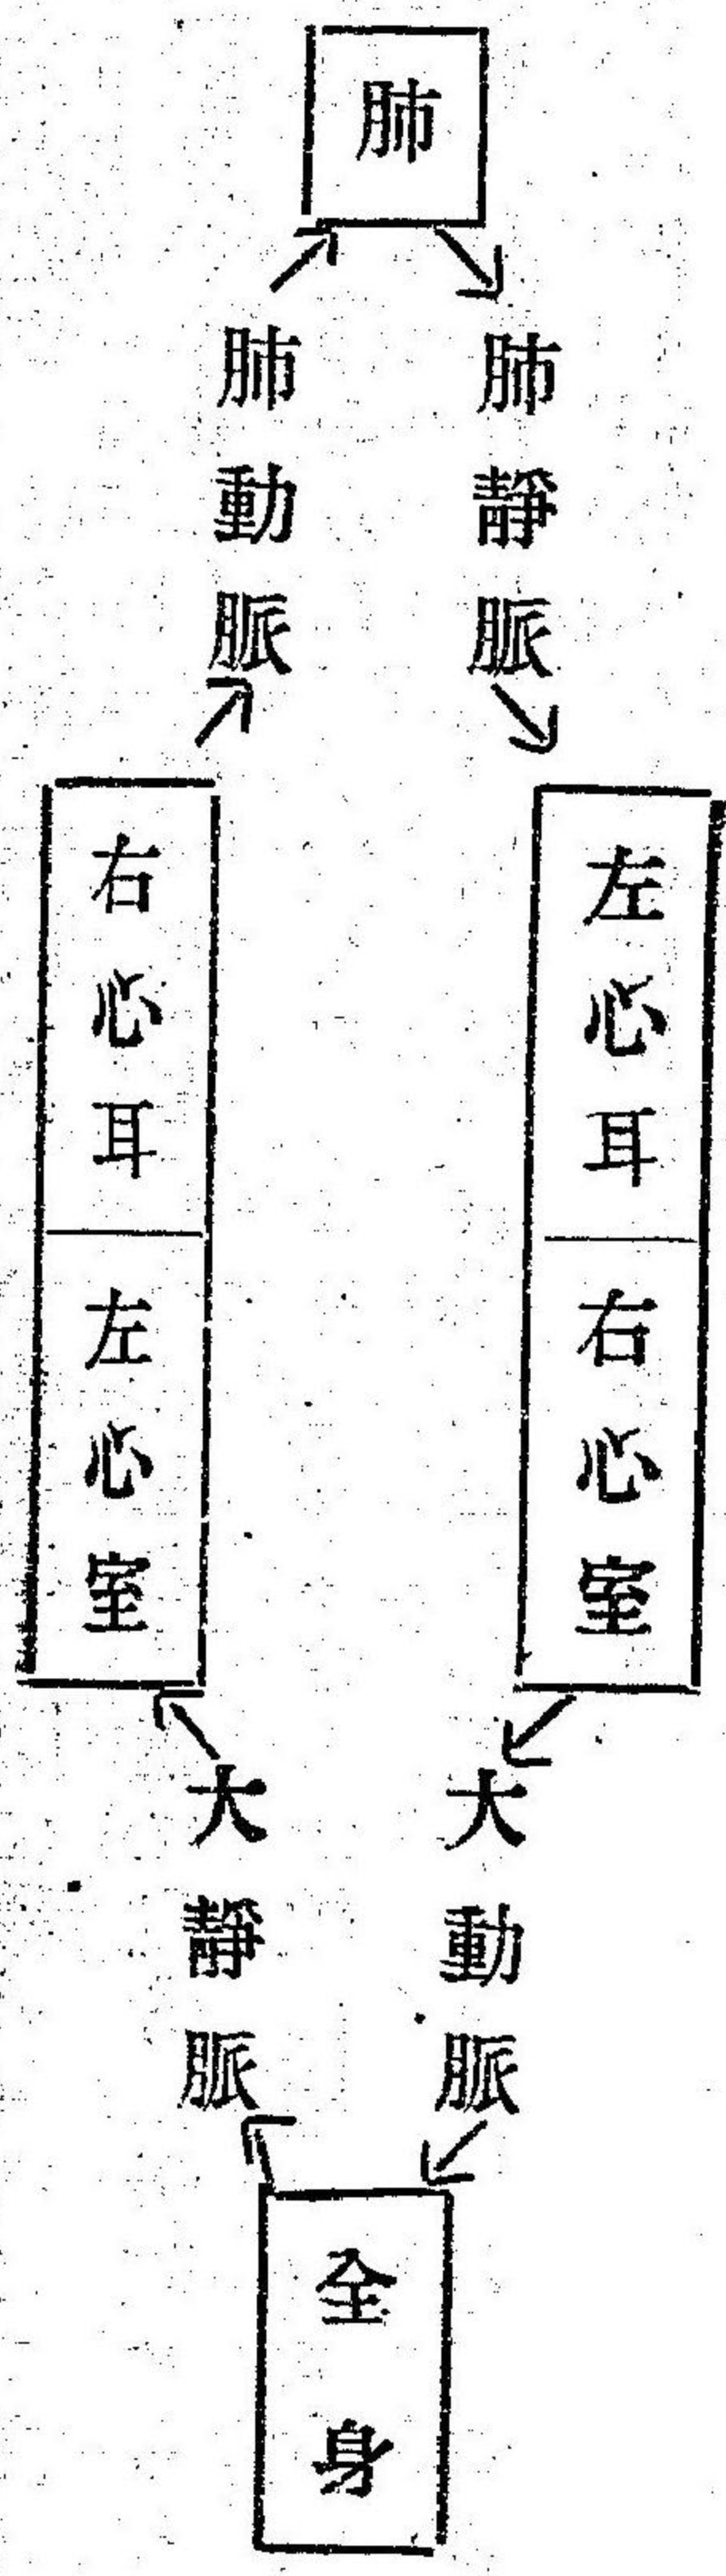 肺
肺靜脈
肺動脈
左心耳
右心室
右心耳
左心室
大動脈
大靜脈
全身